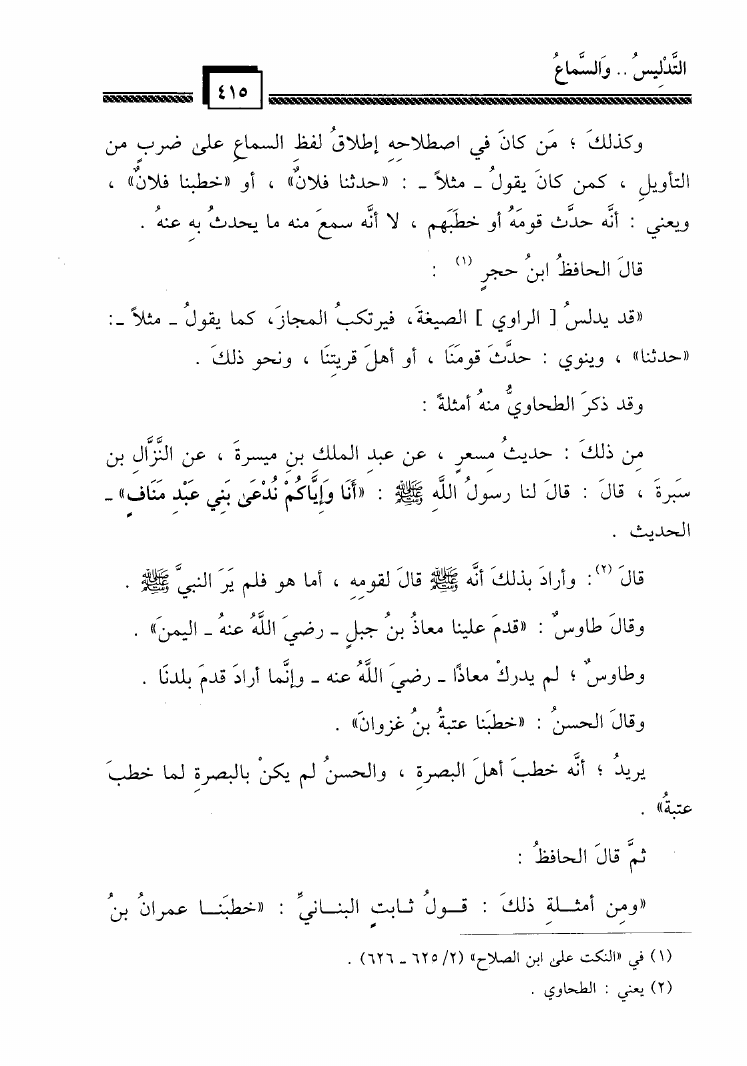 التَّدْلِيسُ .. وَالسَّمَاعُ
٤١٥
وكذلكَ ؛ مَن كانَ في اصطلاحِهِ إطلاقُ لفظِ السماعِ علىٰ ضربٍ من
التأويلِ ، كمن كانَ يقولُ ـ مثلاً ـ : «حدثنا فلانٌ» ، أو «خطبنا فلانٌ» ،
ويعني : أنَّه حدَّث قومَهُ أو خطَبَهم ، لا أنَّه سمعَ منه ما يحدثُ بِهِ عنهُ .
قالَ الحافظُ ابنُ حجرٍ (١) :
«قد يدلسُ [ الراوي ] الصيغةَ، فيرتكبُ المجازَ، كما يقولُ ـ مثلاً ـ:
«حدثنا» ، وينوي : حدَّثَ قومَنَا ، أو أهلَ قريتِنَا ، ونحو ذلكَ .
وقد ذكرَ الطحاويُّ منهُ أمثلةً :
مِن ذلكَ : حديثُ مِسعرٍ ، عن عبدِ الملكِ بنِ ميسرةَ ، عن النزَّالِ بن
سَبرةَ ، قالَ : قالَ لنا رسولُ اللَّهِ ﷺ : «أَنَا وَإِيَّاكُمْ نُدْعَىٰ بَنِي عَبْدِ مَنَافٍ» ـ
الحديث .
قالَ (٢): وأرادَ بذلكَ أنَّه ﷺ قالَ لقومِهِ ، أما هو فلم يَرَ النبيَّ ﷺ .
وقالَ طاوسٌ : «قدمَ علينا معاذُ بنُ جبلٍ ـ رضيَ اللَّهُ عنهُ ـ اليمنَ» .
وطاوسٌ ؛ لم يدركْ معاذًا ـ رضيَ اللَّهُ عنه ـ وإنَّما أرادَ قدمَ بلدنَا .
وقالَ الحسنُ : «خطبَنا عتبةُ بنُ غزوانَ» .
يريدُ ؛ أنَّه خطبَ أهلَ البصرةِ ، والحسنُ لم يكنْ بالبصرةِ لما خطبَ
عتبةُ» .
ثمَّ قالَ الحافظُ :
«ومِن أمثلةِ ذلكَ : قولُ ثابتٍ البنانيِّ : «خطبَنا عمرانُ بنُ
(١) في «النكت علىٰ ابن الصلاح» (٢/ ٦٢٥ ـ ٦٢٦) .
(٢) يعني : الطحاوي .